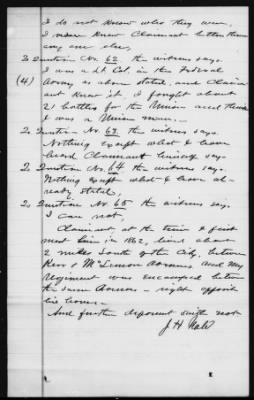 I do not know who they were.
I never knew Claimant better than
any one else,
2 Question No. 62 the witness says
(4) I was a Lt Col. in the Federal
Army as above stated, and Claim
ant knew it I fought about
21 battles for the Union and think
I was a Union man.—
2, Question No. 63 the witness says.
Nothing except what I have
heard Claimant himself say.
2, Question No. 64 the witness says.
Nothing except what I have al-
ready stated,
2, Question No. 65 the witness says
I can not,
Claimant, at the time I first
met him in 1862, lived about
2 miles South of the City, between
Kerr & McLemore Avenues and my
Regiment was encamped between
the same Avenues - right opposite
his house.-
And further deponent saith not
J. H.